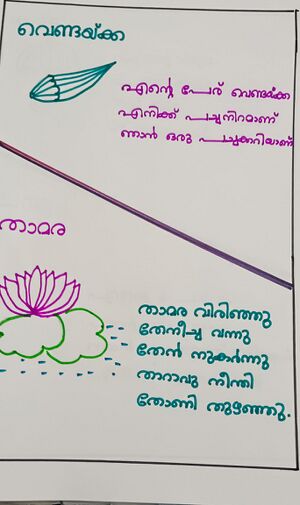 വെണ്ടയ്ക്ക
എന്റെ പേര് വെണ്ടയ്ക്ക
എനിക്ക് പച്ചനിറമാണ്
ഞാൻ ഒരു പച്ചക്കറിയാണ്
താമര
താമര വിരിഞ്ഞു
തേനീച്ച വന്നു
തേൻ നുകർന്നു
താറാവു നീന്തി
തോണി തുഴഞ്ഞു.